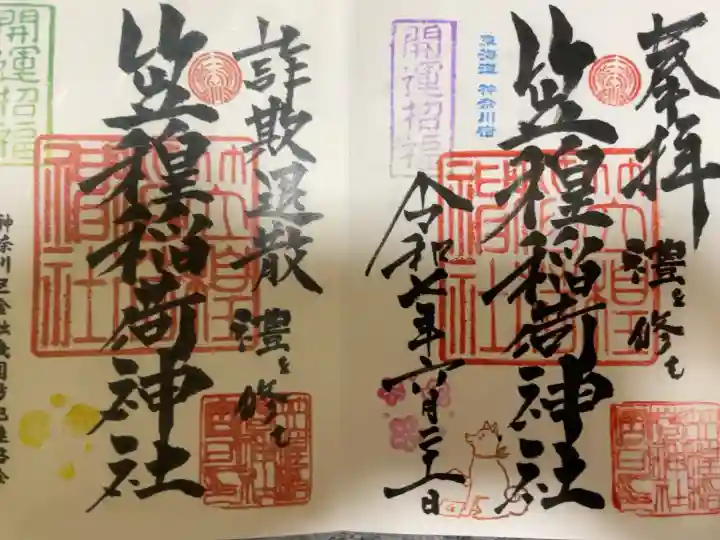 奉拝
禮を修む
笠䅣稲荷神社
東海道 神奈川宿
開運招福
令和七年六月二十一日
詐欺退散
禮を修む
笠䅣稲荷神社
開運招福
神奈川区金融機関防犯連絡会